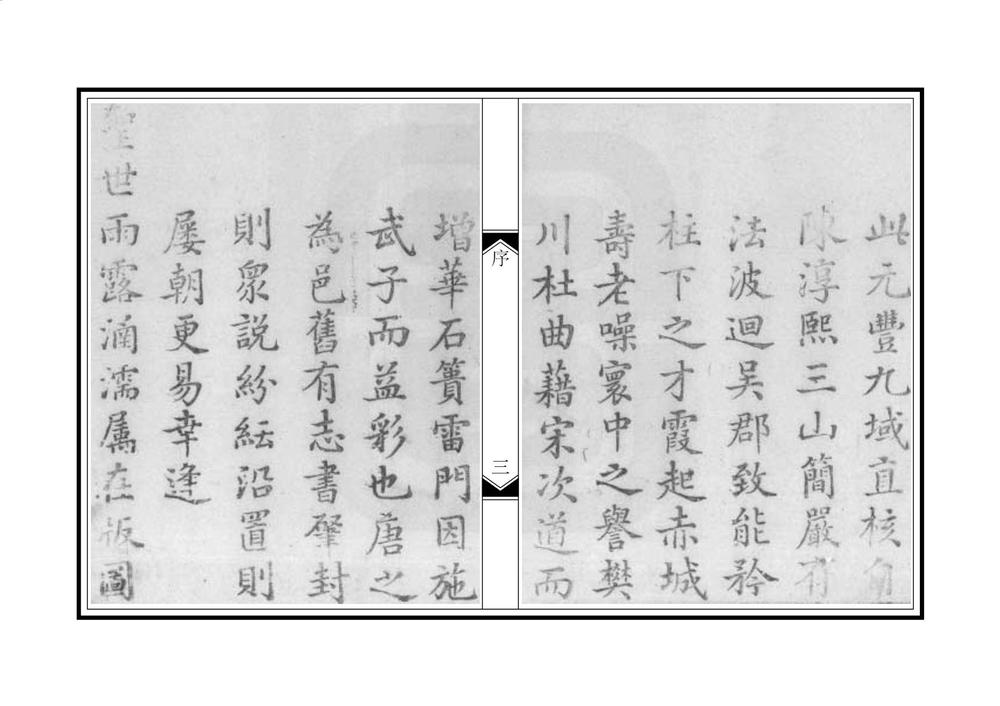 此元豐九域直核自
陳淳熙三山簡嚴有
法波迴吳郡致能矜
柱下之才霞起赤城
壽老噪寰中之譽樊
川杜曲藉宋次道而
序
三
增華石簣雷門因施
武子而益彩也唐之
為邑舊有志書肇封
則眾説紛紜沿置則
屡朝更易幸逢
聖世雨露涵濡属在版圖